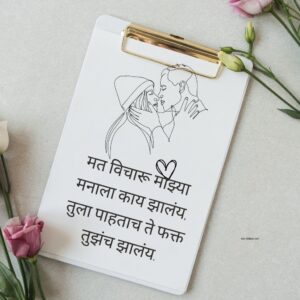 मत विचारू माझ्या
मनाला काय झालंय.
तुला पाहताच ते फक्त
तुझंच झालंय.